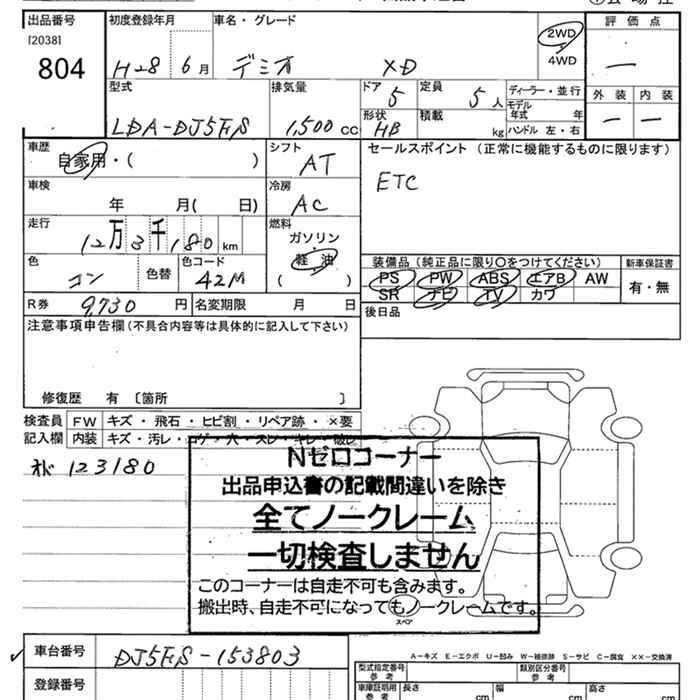 出品番号
[2038]
804
初度登録年月
H28 6月
車名・グレード
デミオ XD
2WD
4WD
評価点
ー
外装 内装
ー ー
型式
LDA-DJ5FS
排気量
1,500 cc
ドア
5
定員
5人
ディーラー・並行
モデル年式 年
形状
HB
積載
kg
ハンドル 左・右
車歴
自家用・( )
シフト
AT
セールスポイント (正常に機能するものに限ります)
ETC
車検
年 月( 日)
冷房
AC
走行
12万3千180km
燃料
ガソリン
軽油
( )
色
コン
色替
色コード
42M
装備品(純正品に限り○をつけてください)
PS PW ABS エアB AW
SR ナビ TV カワ
新車保証書
有・無
R券 9,730円
名変期限 月 日
後日品
注意事項申告欄(不具合内容等は具体的に記入して下さい)
修復歴 有 〔箇所 〕
検査員記入欄
FW キズ・飛石・ヒビ割・リペア跡・×要
内装 キズ・汚レ・コゲ・穴・スレ・キレ・破レ
123180
Nゼロコーナー
出品申込書の記載間違いを除き
全てノークレーム
一切検査しません
このコーナーは自走不可も含みます。
搬出時、自走不可になってもノークレームです。
スペア
A-キズ E-エクボ U-凹み W-補修跡 S-サビ C-腐食 XX-交換済
車台番号
DJ5FS-153803
登録番号
型式指定番号
参考
類別区分番号
参考
車庫証明用
参考
長さ cm
幅 cm
高さ cm